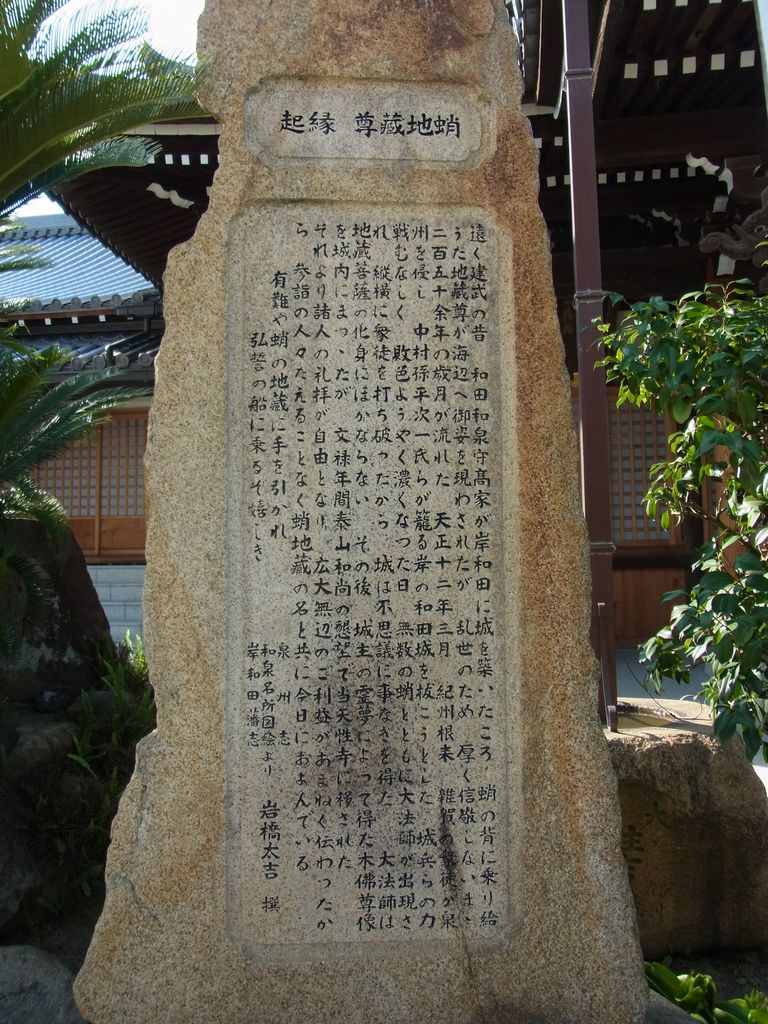 蛸地蔵尊 縁起
遠く建武の昔 和田和泉守高家が岸和田に城を築いたころ 蛸の背に乗り給
うた地蔵尊が海辺へ御姿を現わされたが 乱世のため 厚く信敬しないまゝ
二百五十余年の歳月が流れた 天正十二年三月 紀州根来 雑賀の衆徒が泉
州を侵し 中村孫平次一氏らが籠る岸の和田城を抜こうとした 城兵らの力
戦むなしく 敗色ようやく濃くなった日 無数の蛸とともに大法師が出現さ
れ 縦横に衆徒を打ち破ったから 城は不思議に事なきを得た 大法師は
地蔵菩薩の化身にほかならない その後 城主の霊夢によって得た木佛尊像
を城内にまつったが 文禄年間泰山和尚の懇望で当天性寺に移された
それより諸人の礼拝が自由となり 広大無辺のご利益があまねく伝わったか
ら 参詣の人々たえることなく蛸地蔵の名と共に今日におよんでいる
有難や蛸の地蔵に手を引かれ
弘誓の船に乗るぞ嬉しき
泉州志
和泉名所図絵より 岩橋太吉 撰
岸和田藩志